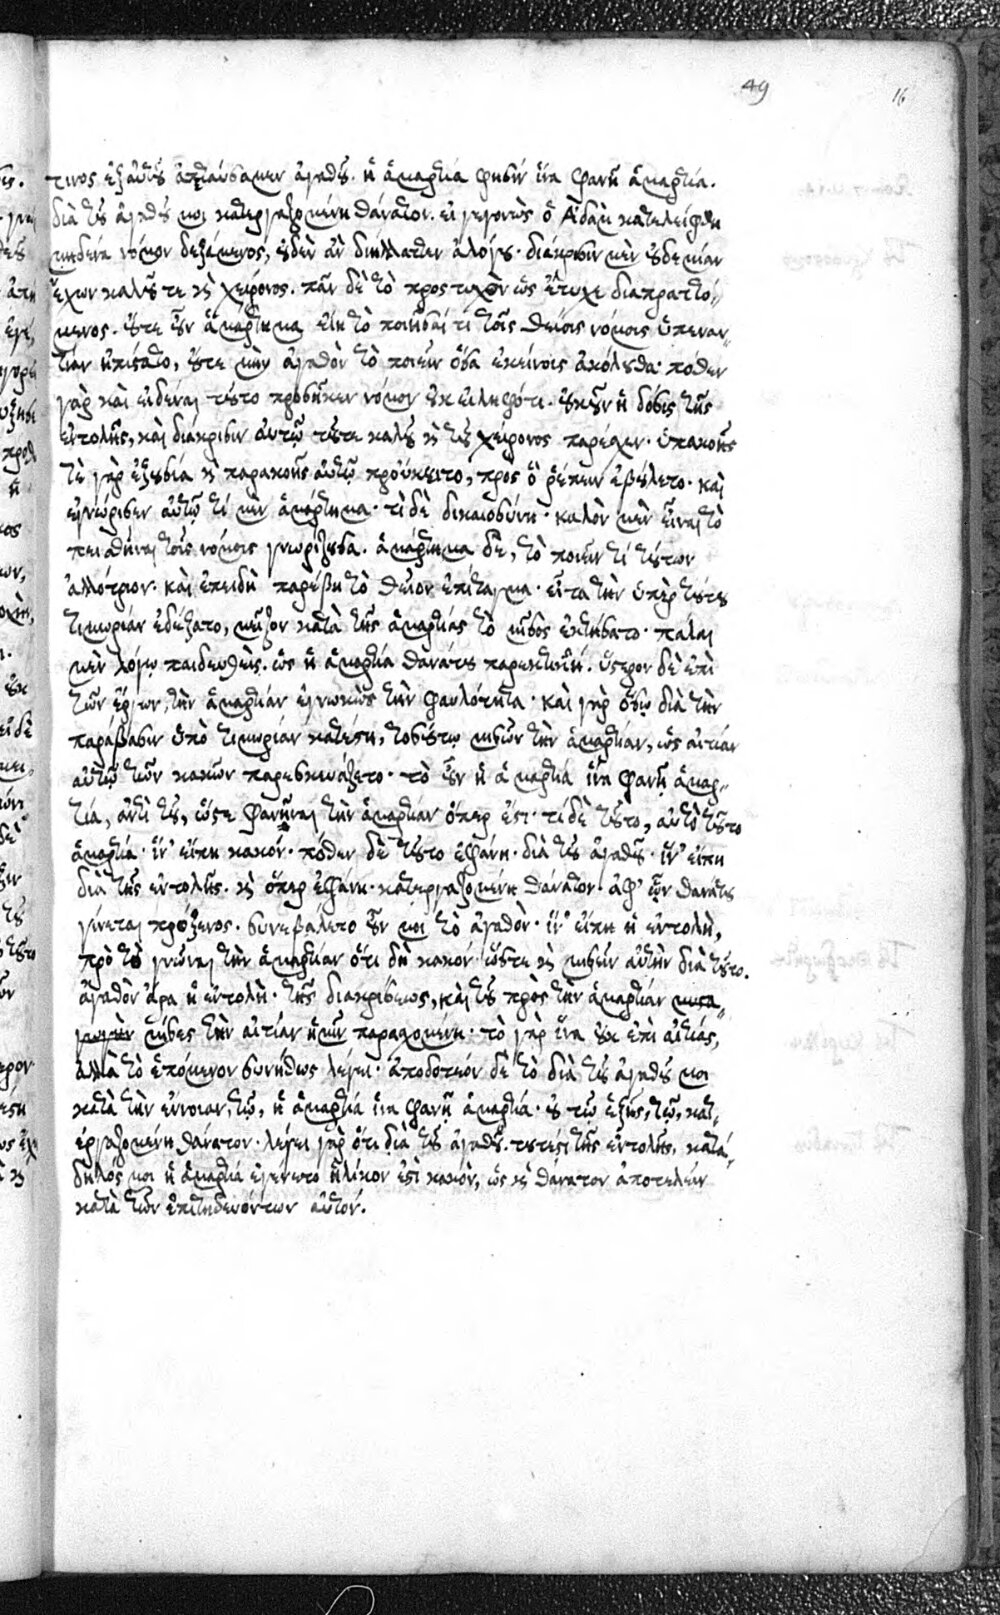 49 16
τινος ἐξ αὐτῆς ἀπελαύσαμεν ἀγαθοῦ. ἡ ἁμαρτία φησὶν ἵνα φανῇ ἁμαρτία.
διὰ τοῦ ἀγαθοῦ μοι κατεργαζομένη θάνατον. εἰ γεγονὼς ὁ Ἀδὰμ κατελείφθη
μηδένα νόμον δεξάμενος, οὐδὲν ἂν διήλλαττεν ἀλόγου· διάκρισιν μὲν οὐδεμίαν
ἔχων καλοῦ τε καὶ χείρονος. πᾶν δὲ τὸ προστυχὸν ὡς ἔτυχε διαπραττό„
μενος. οὔτε οὖν ἁμάρτημα εἴη τὸ ποιῆσαί τι τοῖς θείοις νόμοις ὑπεναν„
τίον ἠπίστατο, οὔτε μὴν ἀγαθὸν τὸ ποιεῖν ὅσα ἐκείνοις ἀκόλουθα· πόθεν
γὰρ καὶ εἰδέναι τοῦτο προσῆκεν νόμον οὐκ εἰληφότι. οὐκοῦν ἡ δόσις τῆς
ἐντολῆς, καὶ διάκρισιν αὐτῷ τοῦτε καλοῦ καὶ τοῦ χείρονος παρέσχεν· ὑπακοῆς
τὲ γὰρ ἐξουσία καὶ παρακοῆς αὐτῷ προὔκειτο, πρὸς ὃ ῥέπειν ἐβούλετο. καὶ
ἐγνώρισεν αὐτῷ τί μὲν ἁμάρτημα· τί δὲ δικαιοσύνη· καλὸν μὲν εἶναι τὸ
πεισθῆναι τοῖς νόμοις γνωρίζουσα. ἁμάρτημα δὲ, τὸ ποιεῖν τί τούτων
ἀλλότριον. καὶ ἐπειδὴ παρέβη τὸ θεῖον ἐπίταγμα· εἶτα τὴν ὑπὲρ τούτου
τιμωρίαν ἐδέξατο, μεῖζον κατὰ τῆς ἁμαρτίας τὸ μῖσος ἐκτήσατο· πάλαι
μὲν λόγῳ παιδευθεὶς. ὡς ἡ ἁμαρτία θανάτου παρεκτικὴ. ὕστερον δὲ ἐπὶ
τῶν ἔργων, τὴν ἁμαρτίαν ἐγνωκὼς τὴν φαυλότητα· καὶ γὰρ ὅσῳ διὰ τὴν
παράβασιν ὑπὸ τιμωρίαν κατέστη, τοσούτῳ μισεῖν τὴν ἁμαρτίαν, ὡς αἰτίαν
αὐτῷ τῶν κακῶν παρεσκευάζετο· τὸ οὖν ἡ ἁμαρτία ἵνα φανῇ ἁμαρ„
τία, ἀντὶ τοῦ, ὥστε φανῆναι τὴν ἁμαρτίαν ὅπερ ἐστὶ· τί δὲ τοῦτο, αὐτὸ τοῦτο
ἁμαρτία· ἵν' εἴπῃ κακόν· πόθεν δὲ τοῦτο ἐφάνη· διὰ τοῦ ἀγαθοῦ· ἵν' εἴπῃ
διὰ τῆς ἐντολῆς. καὶ ὅπερ ἐφάνη· κατεργαζομένη θάνατον· ἀφ' ὧν θανάτου
γίνεται πρόξενος. συνεβάλετο οὖν μοι τὸ ἀγαθὸν· ἵν' εἴπῃ ἡ ἐντολὴ,
πρὸ τὸ γνῶναι τὴν ἁμαρτίαν ὅτι δὴ κακόν· ὥστε καὶ μισεῖν αὐτὴν διὰ τοῦτο.
ἀγαθὸν ἄρα ἡ ἐντολὴ· τῆς διακρίσεως, καὶ τοῦ πρὸς τὴν ἁμαρτίαν
μίσους τὴν αἰτίαν ἡμῖν παρασχομένη· τὸ γὰρ ἵνα οὐκ ἐπὶ αἰτίας,
ἀλλὰ τὸ ἑπόμενον συνήθως λέγει· ἀποδοτέον δὲ τὸ διὰ τοῦ ἀγαθοῦ μοι
κατὰ τὴν ἔννοιαν, τῷ, ἡ ἁμαρτία ἵνα φανῇ ἁμαρτία· οὐ τῷ ἑξῆς, τῷ, κατ„
εργαζομένη θάνατον· λέγει γὰρ ὅτι διὰ τοῦ ἀγαθοῦ. τουτέστι τῆς ἐντολῆς, κατά„
δηλός μοι ἡ ἁμαρτία ἐγένετο ἡλίκον ἐστὶ κακόν, ὡς καὶ θάνατον ἀποτελεῖν
κατὰ τῶν ἐπιτηδευόντων αὐτόν.